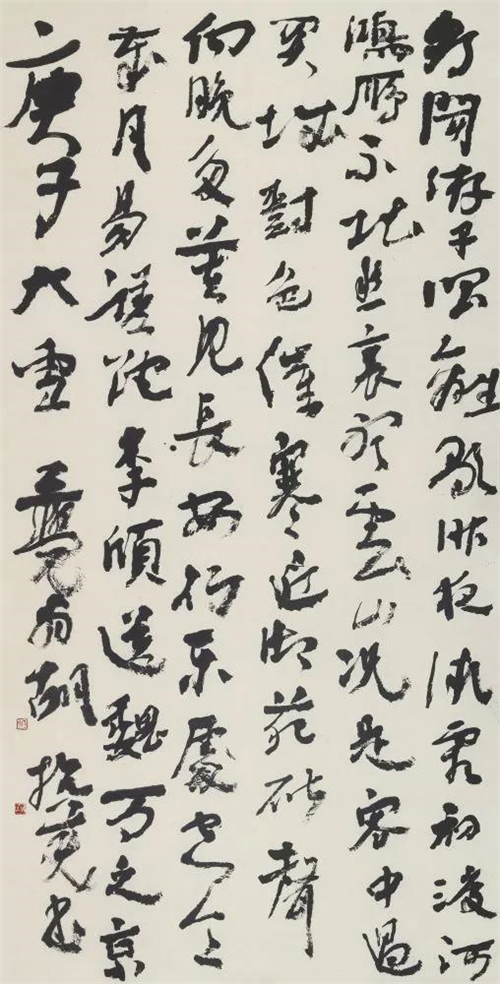 朝聞游子唱離歌昨夜微霜初渡河
鴻雁不堪愁裏聽雲山況是客中過
關城樹色催寒近御苑砧聲
向晚多莫見長安行樂處空令
歲月易蹉跎李頎送魏萬之京
庚子大雪 胡抗美書